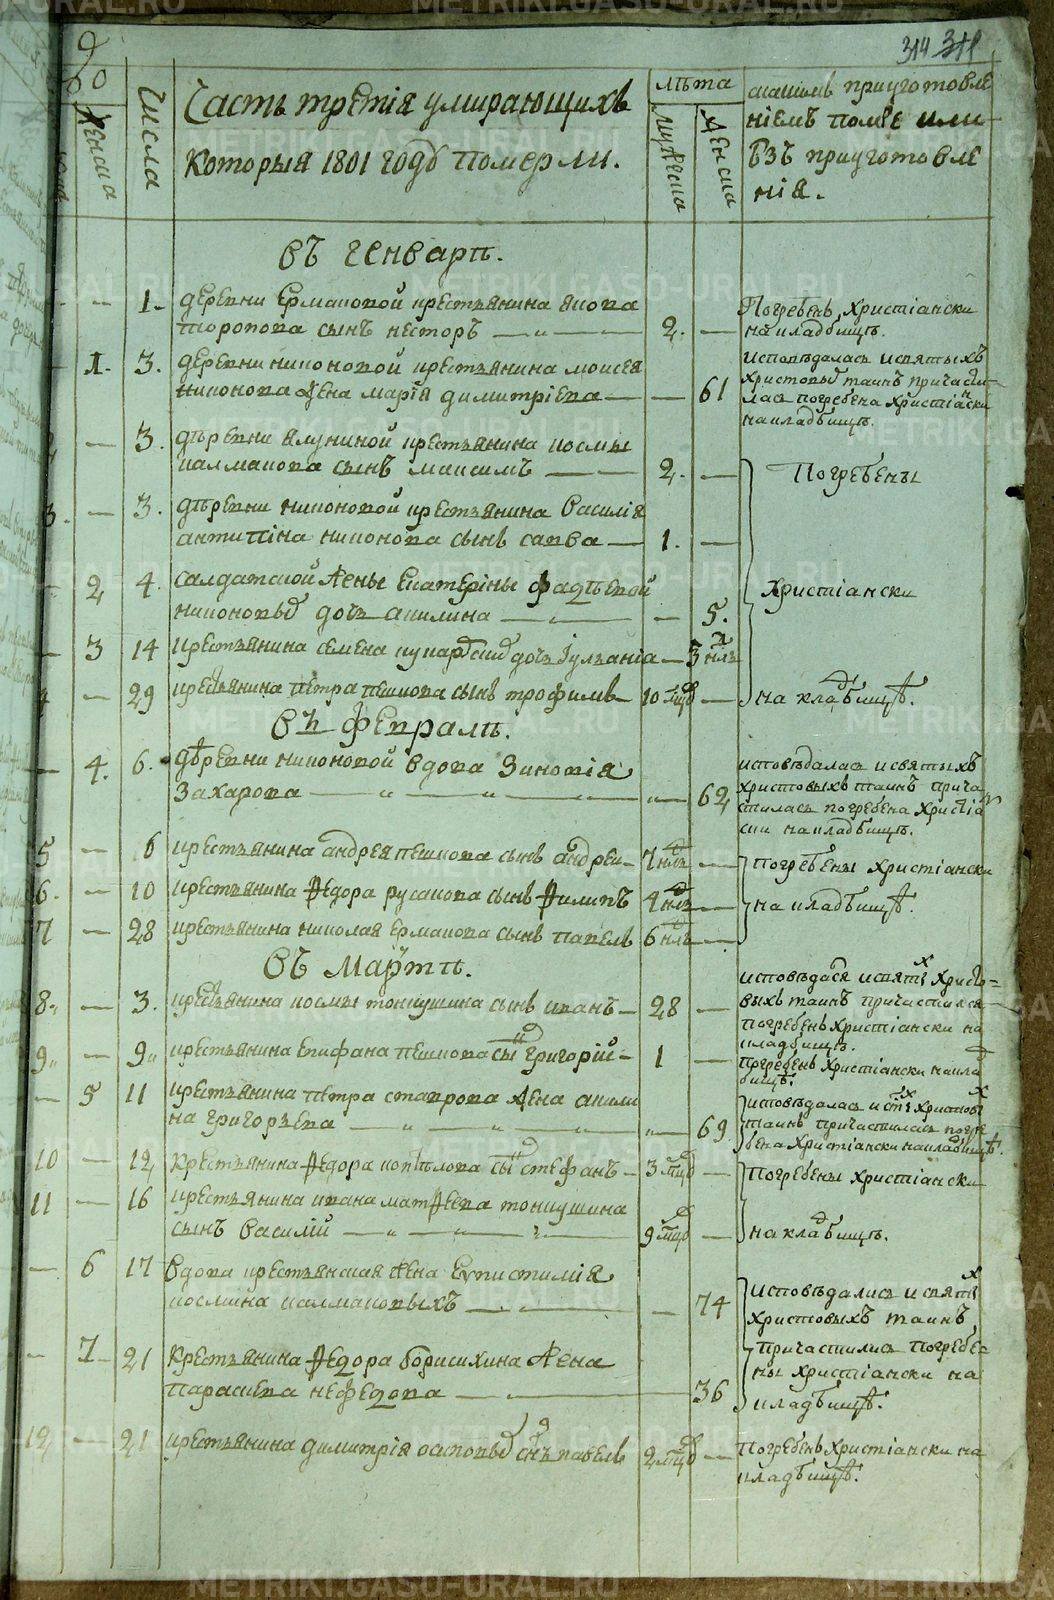 314 311
Числа
Женска
Часть третія умирающихъ
которыя 1801 годѣ померли.
лѣта
мужеска
Женска
какимъ приуготовле
ніемъ померъ или
бэзъ приуготовле
нія.
въ генварѣ.
— 1. деревни Ермаковой крестьянина якова
торопова сынъ несторъ — 2. —
Погребенъ Христіански
на кладбищѣ.
1. 3. деревни никоновой крестьянина моисея
никонова жена марія димитріева — — 61
исповѣдалась и святыхъ
христовыхъ таинъ причасти
лась погребена христіански
на кладбищѣ.
— 3. дѣревни ялуниной крестьянина космы
калмакова сынъ максимъ — 2. —
Погребены
3. — 3. дѣревни никоновой крестьянина василія
антипіна никонова сынъ савва — 1. —
2 4. салдатской жены Екатерины фадѣевой
никоновыхъ дочь акилина — — 5.
Христіански
3 14 крестьянина семена дочь іуліанія — 3 нлъ
— 29 крестьянина петра пешкова сынъ трофимъ 10 мцовъ —
на кладбищѣ.
въ февралѣ.
4. 6. дѣревни никоновой вдова Зиновія
Захарова — „ — „ — „ 62
исповѣдалась и святыхъ
христовыхъ таинъ прича
стилась погребена христіа
ски на кладбищѣ.
5 — 6 крестьянина андрея пешкова сынъ андреи 7 нлъ —
погребены христіански
6. — 10 крестьянина Федора русакова сынъ Филипъ 4 нлъ —
на кладбищѣ.
7 — 28 крестьянина николая ермакова сынъ павелъ 6 нлъ —
въ мартѣ.
8. — 3. крестьянина космы тонкушина сынъ иванъ — 28 —
исповѣдася и святыхъ христо=
выхъ таинъ причастился
погребенъ христіански на
кладбищѣ.
9. — 9. крестьянина Епифана пешкова сынъ григорій — 1 —
погребенъ христіански на клад
бищѣ.
— 5 11 крестьянина петра ставрова жена акили
на григорьева — „ — „ — „ — „ 69
исповѣдалась и стыхъ христовы
таинъ причастилась погре
бена христіански на кладбищѣ.
10 — 12, крестьянина Федора копылова сынъ стефанъ — 3 мцовъ —
погребены христіански
11 — 16 крестьянина ивана матфеева тонкушина
сынъ василій — „ — „ — 9 мцовъ —
на кладбищѣ.
— 6 17 вдова крестьянская жена Евпистимія
космина калмаковыхъ — — 74
исповѣдались и святыхъ
христовыхъ таинъ
— 7 21 крестьянина Федора борисихина жена
параскева нефедова — 36
причастились погребе
ны христіански на
кладбищѣ.
12 — 21 крестьянина димитрія осиповыхъ сынъ павелъ 2 мцовъ —
погребенъ христіански на
кладбищѣ.
METRIKI.GASO-URAL.RU